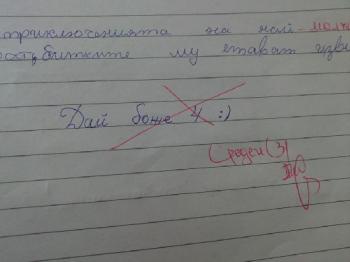 приключенията на най-малк
битките му стават изв
Дай боже 4 :)
Среден (3)